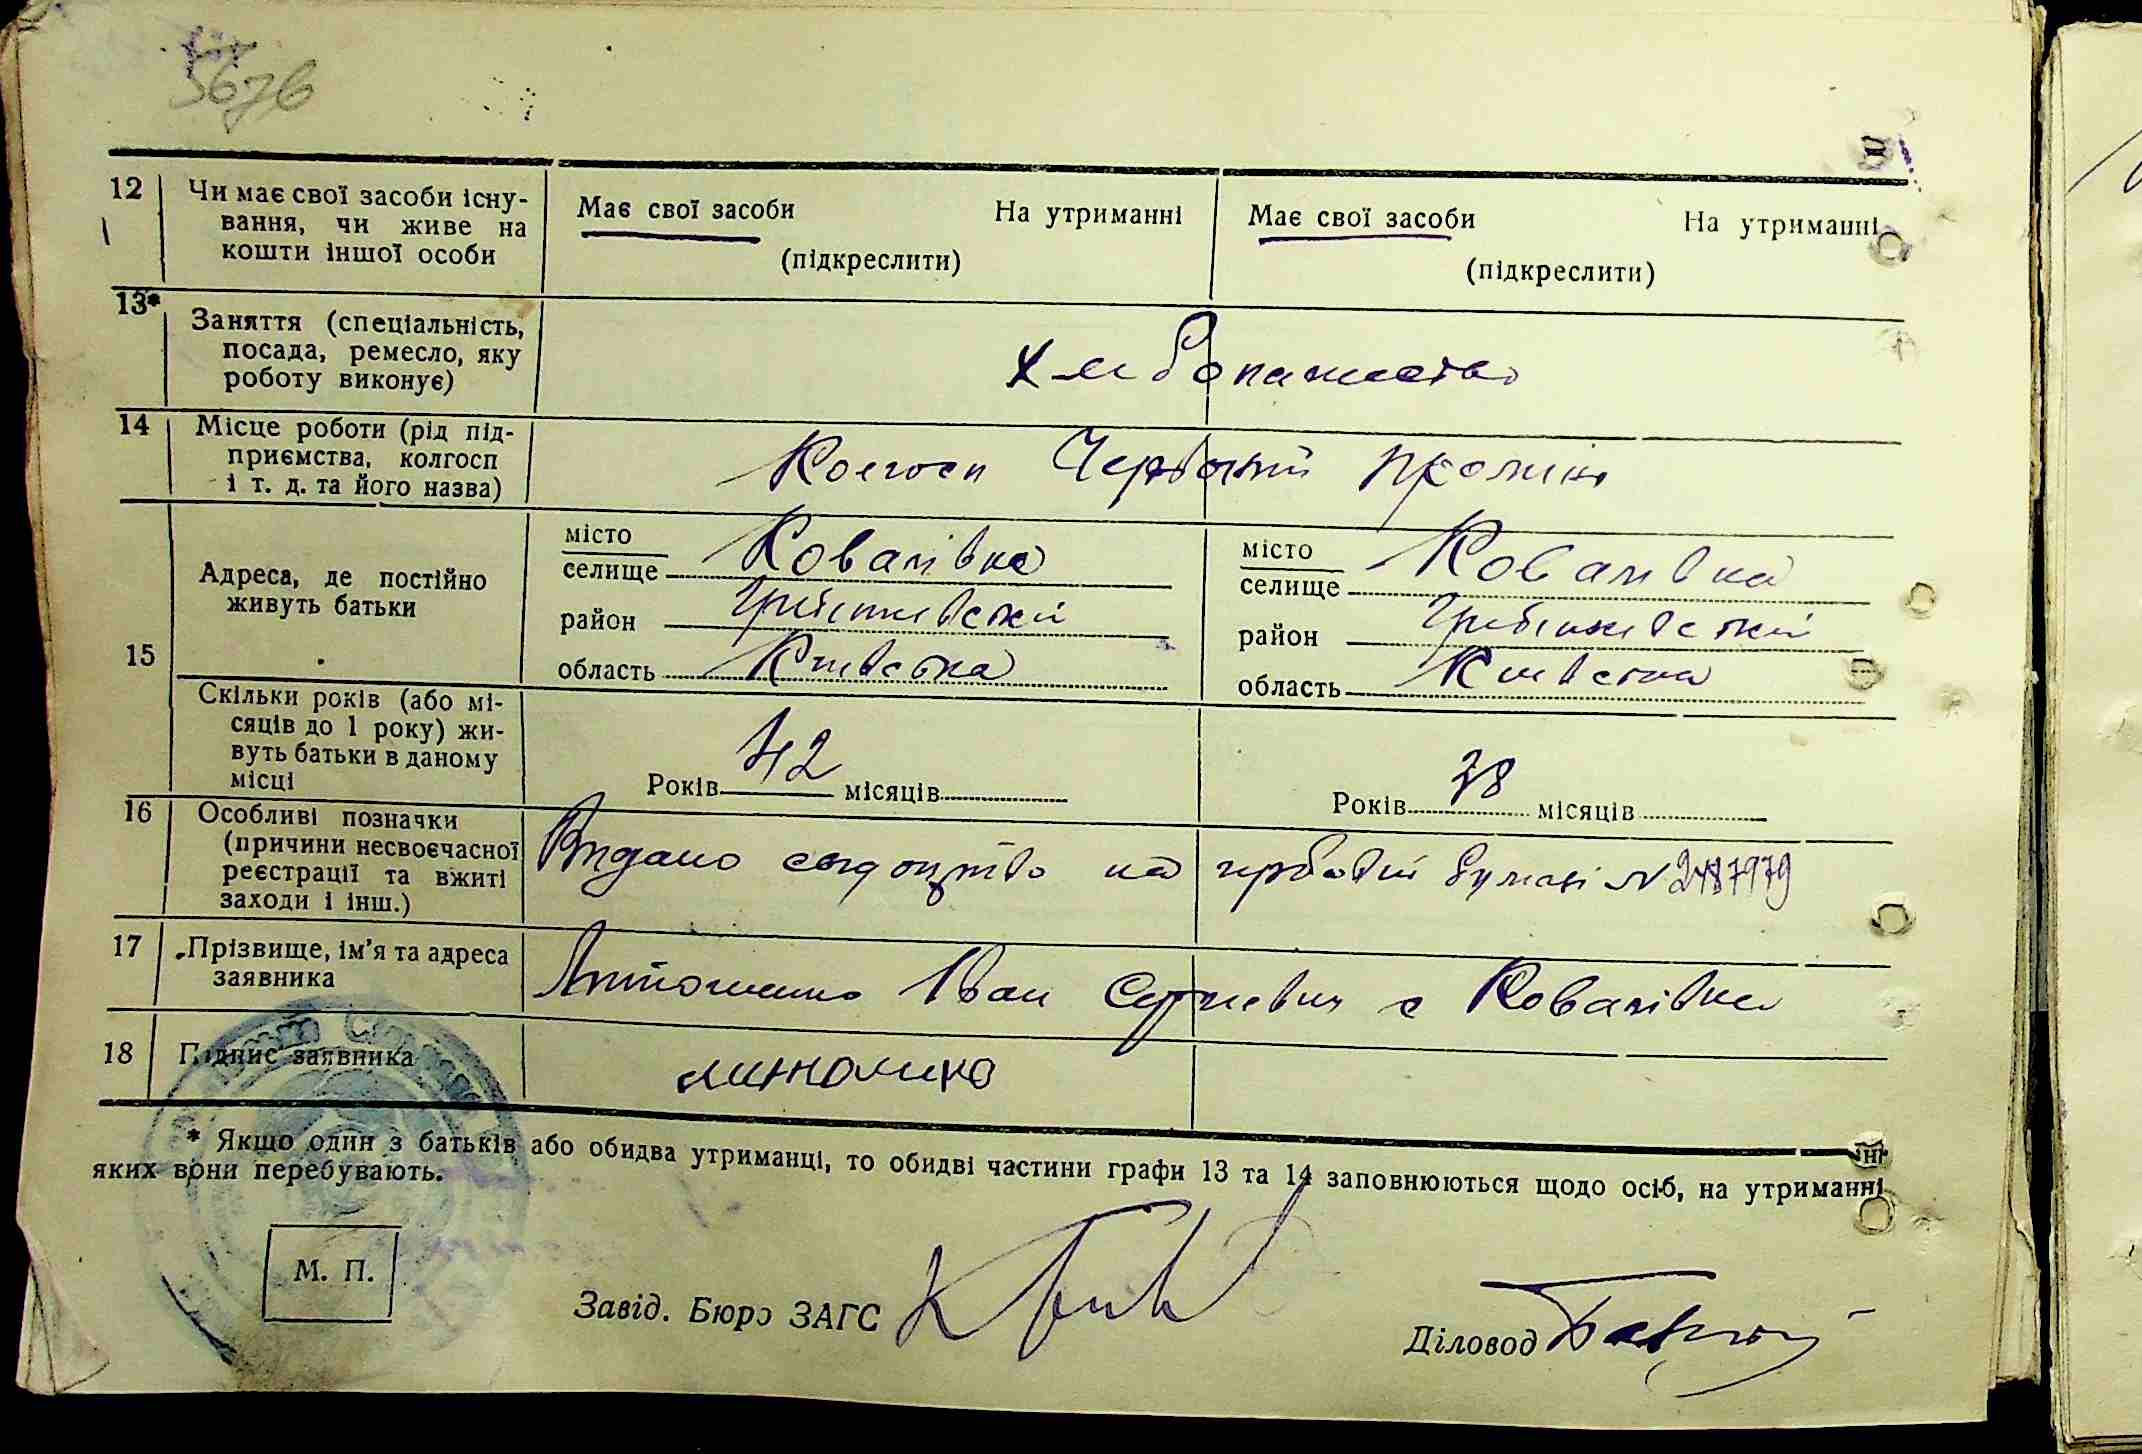 5676
12 Чи має свої засоби існу-
вання, чи живе на
кошти іншої особи
Має свої засоби На утриманні
(підкреслити)
Має свої засоби На утриманні
(підкреслити)
13* Заняття (спеціальність,
посада, ремесло, яку
роботу виконує)
14 Місце роботи (рід під-
приємства, колгосп
і т. д. та його назва)
Колгосп Червоний
15 Адреса, де постійно
живуть батьки
місто
селище Ковалівка
район Гребінківський
область Київська
місто
селище Ковалівка
район Гребінківський
область Київська
Скільки років (або мі-
сяців до 1 року) жи-
вуть батьки в даному
місці
Років 42 місяців
Років 38 місяців
16 Особливі позначки
(причини несвоєчасної
реєстрації та вжиті
заходи і інш.)
Видано на гербовій бумазі №
17 Прізвище, ім'я та адреса
заявника
Іван Сергієвич с Ковалівка
18 Підпис заявника
* Якщо один з батьків або обидва утриманці, то обидві частини графи 13 та 14 заповнюються щодо осіб, на утриманні
яких вони перебувають.
М. П.
Завід. Бюро ЗАГС
Діловод